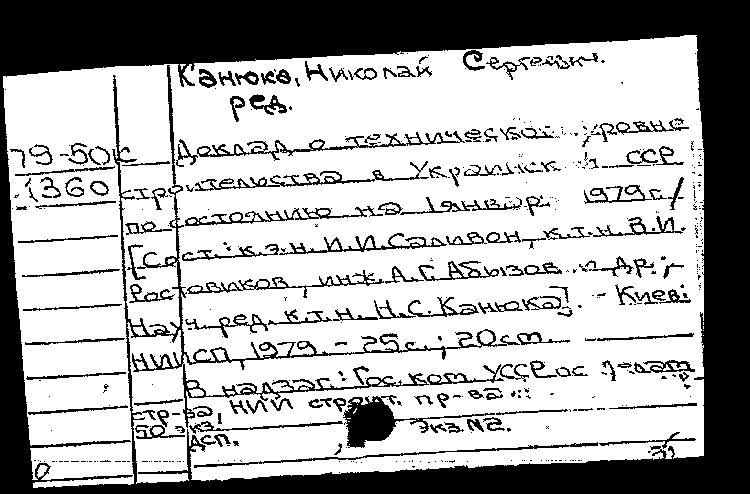 Канюка, Николай Сергеевич.
ред.
79-50к Доклад о техническом уровне
1360 строительства в Украинской ССР
по состоянию на 1 января 1979г./
[Сост.: к.э.н. И.И. Саливон, к.т.н. В.И.
Ростовиков, инж. А.Г. Абызов и др.;
Науч. ред. к.т.н. Н.С. Канюка]. - Киев:
НИИСП, 1979. - 25с.; 20см.
В надзаг.: Гос. ком. УССР по делам
стр-ва, НИИ строит. пр-ва
50 экз.
ДСП. Экз.№2.
0